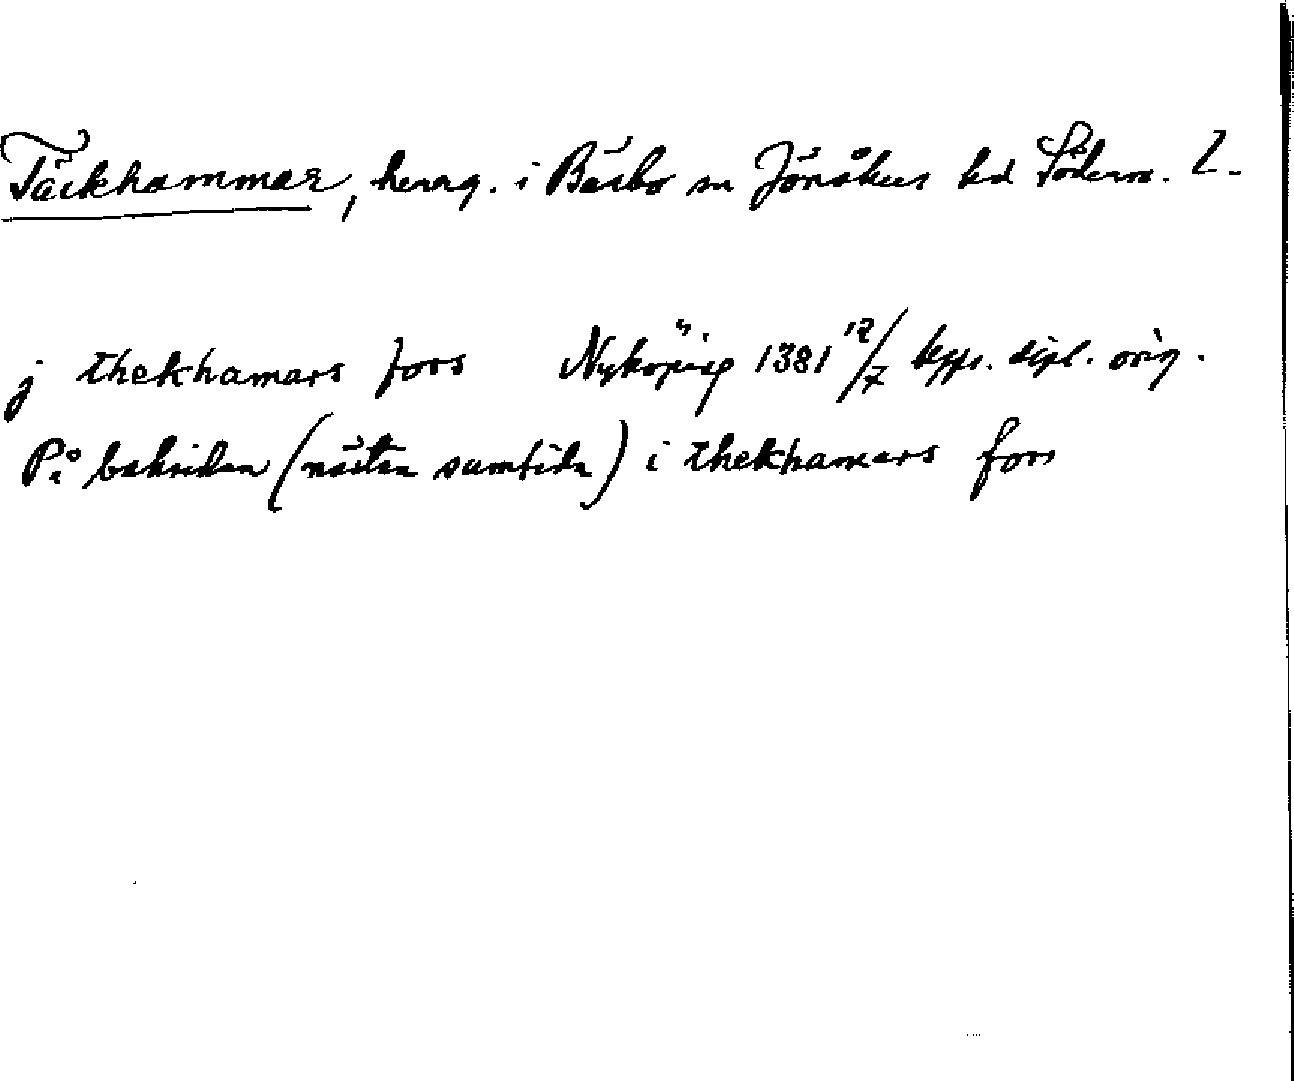 Täckhammar, herrg. i Bärbo sn Jönåkers hd Söderm. l.
j thekhamars fors Nyköping 1381 12/7 dipl. orig.
På baksidan (nästan samtida) i thekhamars fors